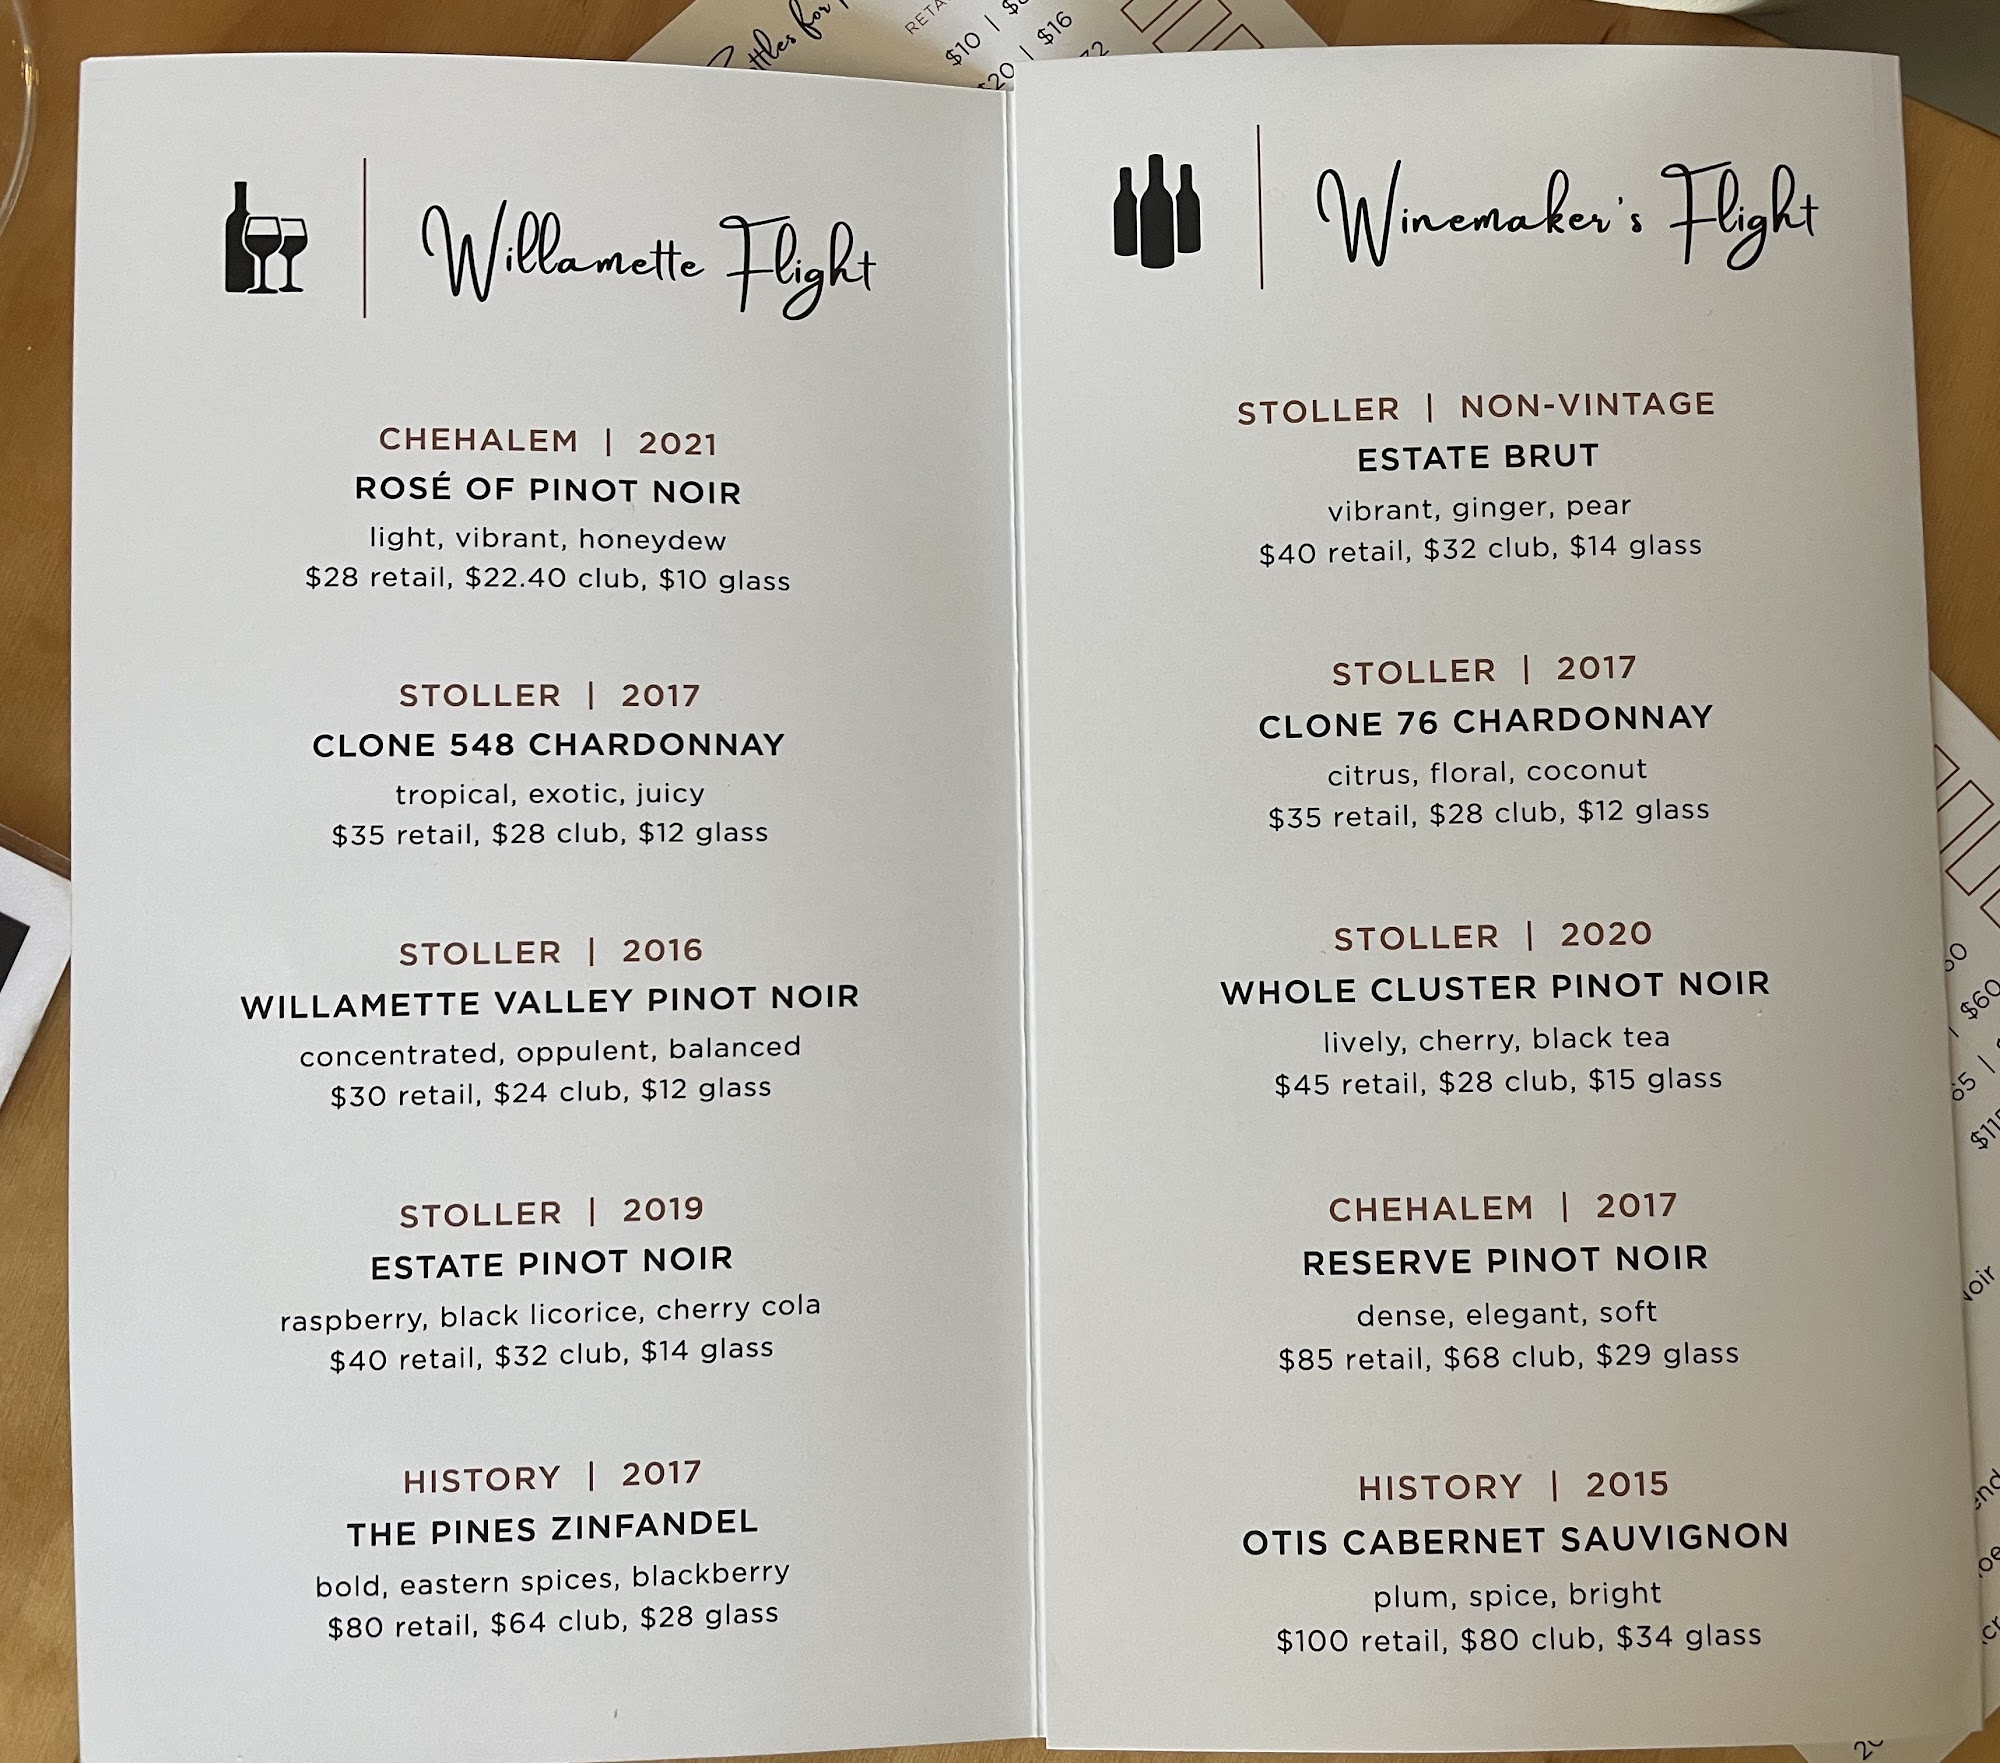 Bottles for
$10 | 
$20 | $16
Willamette Flight
CHEHALEM | 2021
ROSÉ OF PINOT NOIR
light, vibrant, honeydew
$28 retail, $22.40 club, $10 glass
STOLLER | 2017
CLONE 548 CHARDONNAY
tropical, exotic, juicy
$35 retail, $28 club, $12 glass
STOLLER | 2016
WILLAMETTE VALLEY PINOT NOIR
concentrated, oppulent, balanced
$30 retail, $24 club, $12 glass
STOLLER | 2019
ESTATE PINOT NOIR
raspberry, black licorice, cherry cola
$40 retail, $32 club, $14 glass
HISTORY | 2017
THE PINES ZINFANDEL
bold, eastern spices, blackberry
$80 retail, $64 club, $28 glass
Winemaker's Flight
STOLLER | NON-VINTAGE
ESTATE BRUT
vibrant, ginger, pear
$40 retail, $32 club, $14 glass
STOLLER | 2017
CLONE 76 CHARDONNAY
citrus, floral, coconut
$35 retail, $28 club, $12 glass
STOLLER | 2020
WHOLE CLUSTER PINOT NOIR
lively, cherry, black tea
$45 retail, $28 club, $15 glass
CHEHALEM | 2017
RESERVE PINOT NOIR
dense, elegant, soft
$85 retail, $68 club, $29 glass
HISTORY | 2015
OTIS CABERNET SAUVIGNON
plum, spice, bright
$100 retail, $80 club, $34 glass
| $60